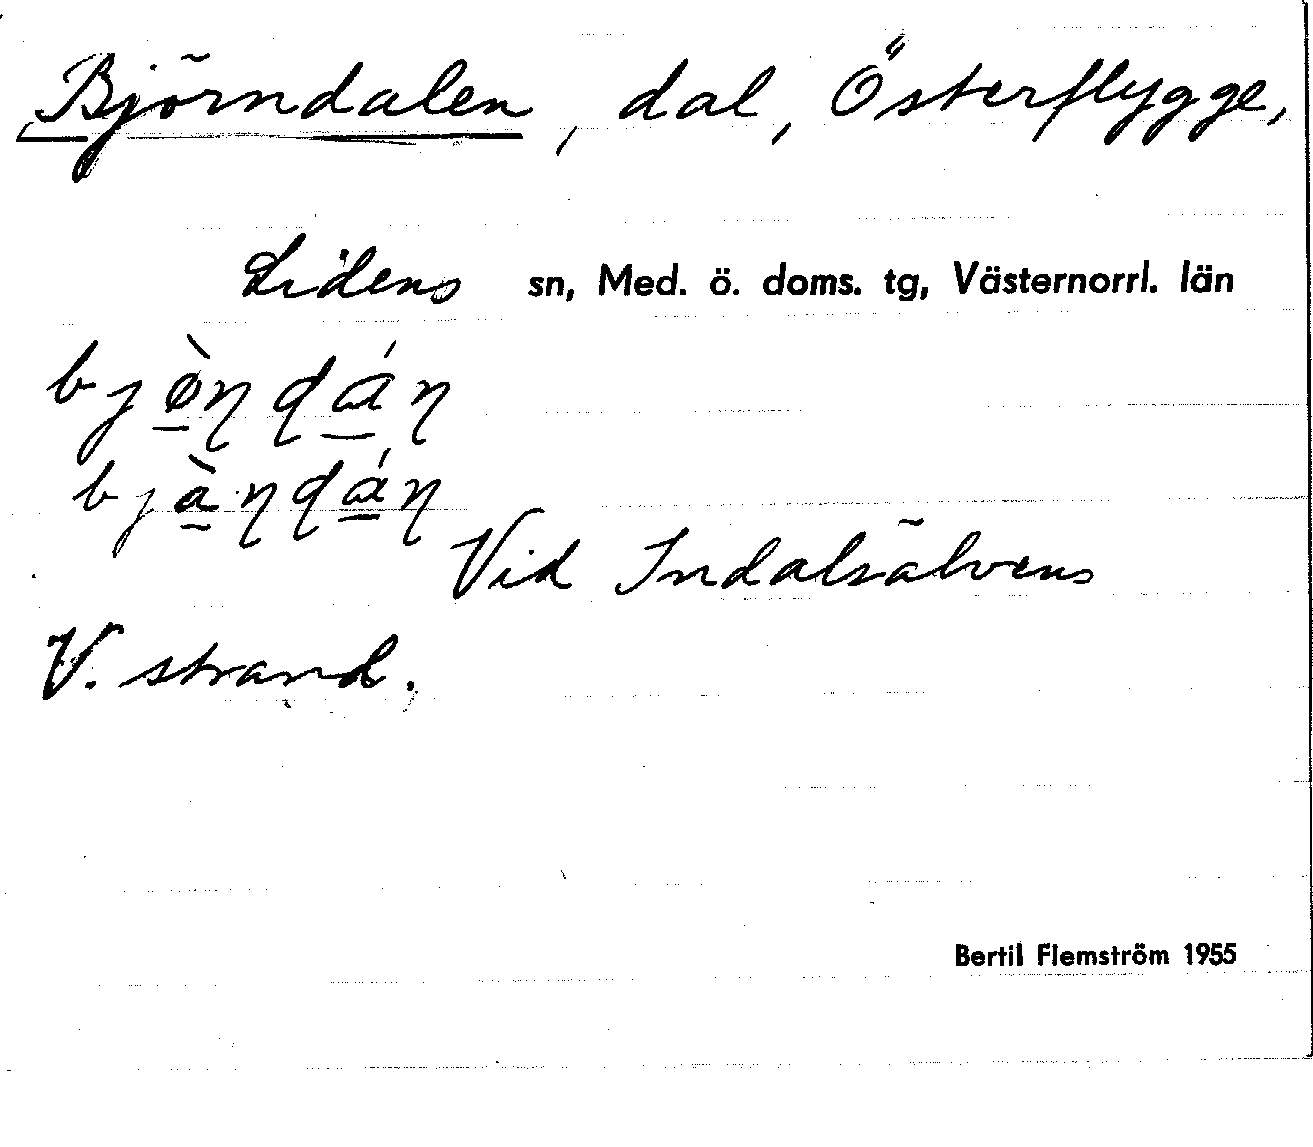 Björndalen, dal, Österflygge,
Lidens sn, Med. ö. doms. tg, Västernorrl. län
Vid Indalsälvens
V. strand.
Bertil Flemström 1955